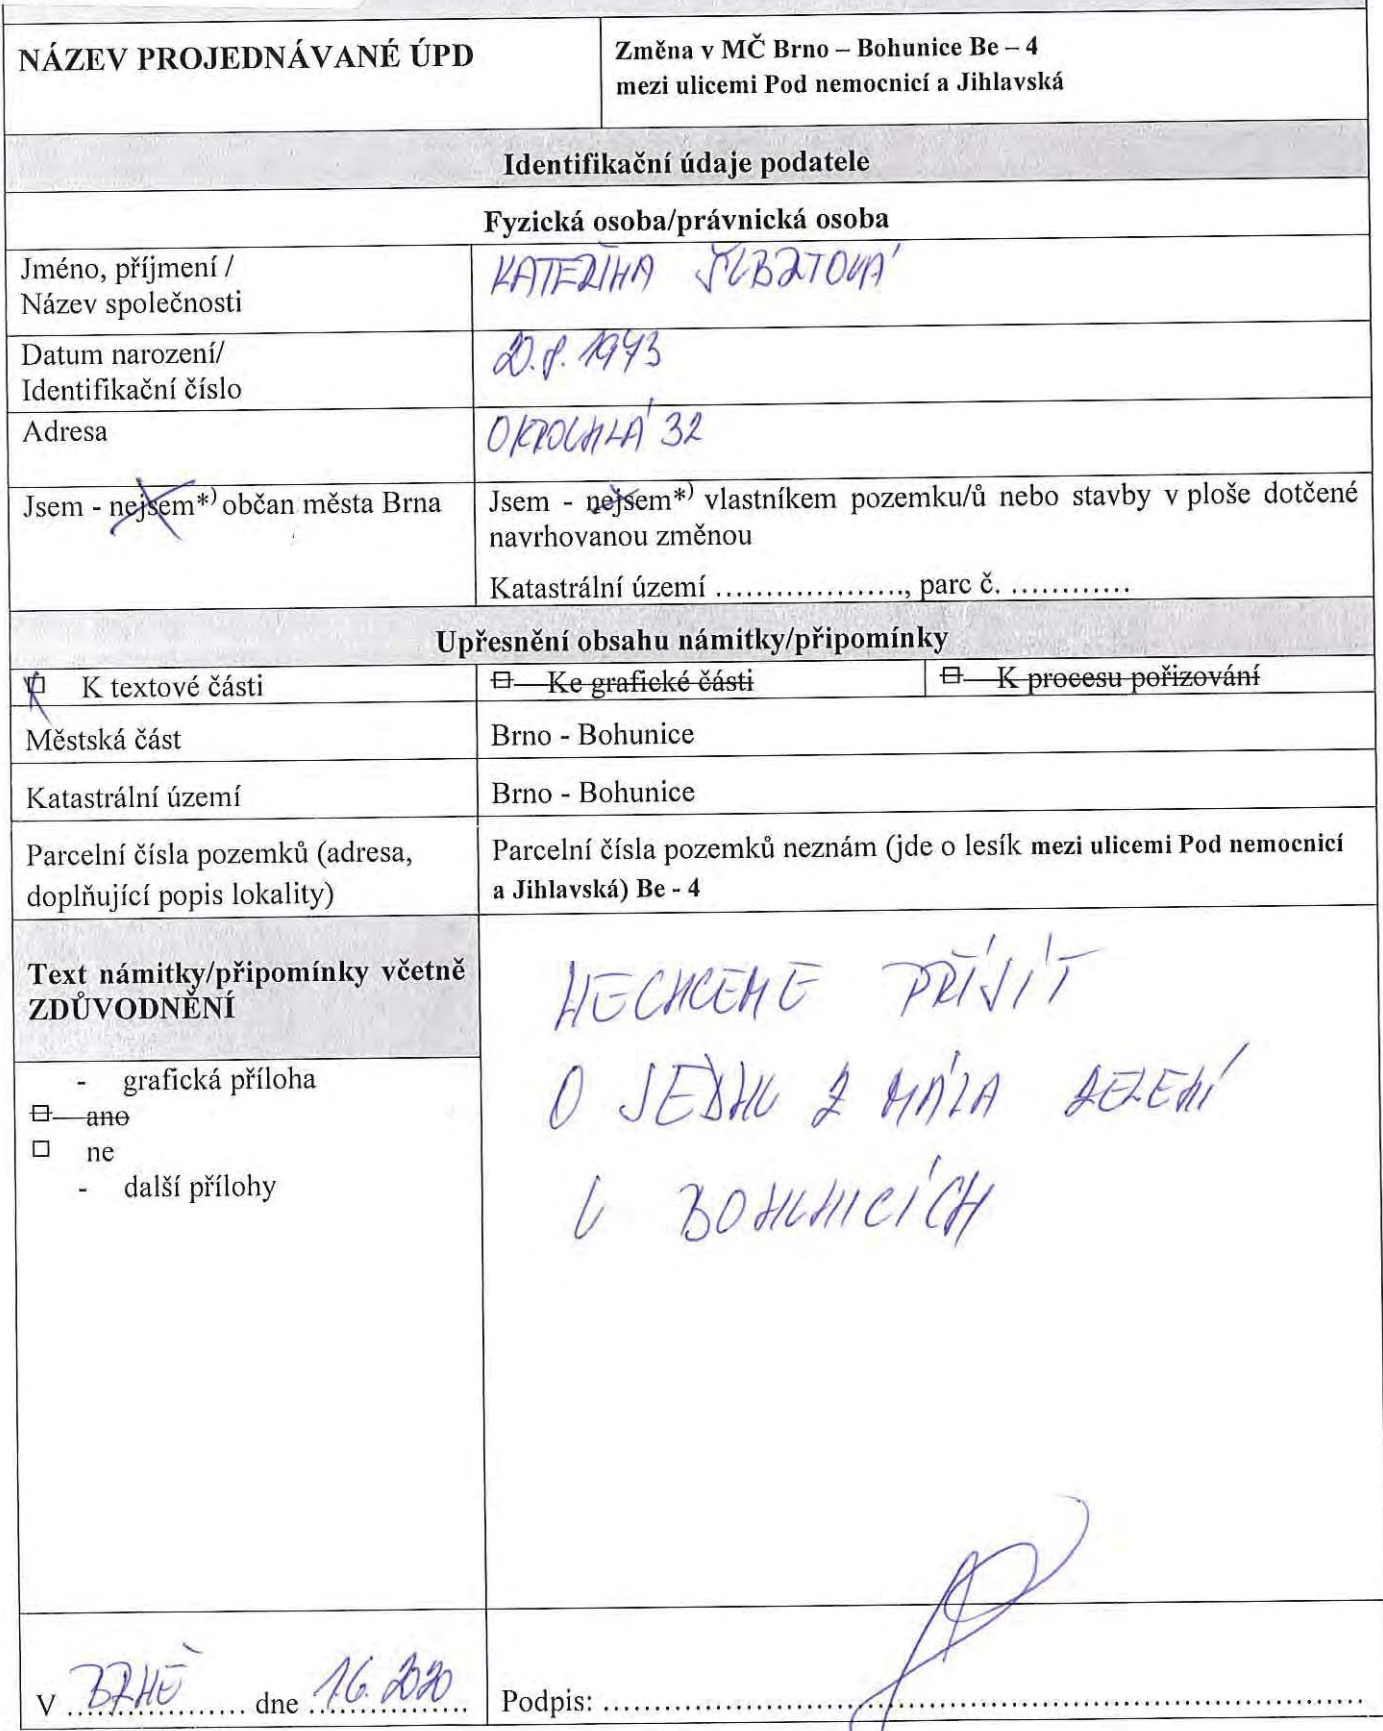 NÁZEV PROJEDNÁVANÉ ÚPD
Změna v MČ Brno – Bohunice Be – 4
mezi ulicemi Pod nemocnicí a Jihlavská
Identifikační údaje podatele
Fyzická osoba/právnická osoba
Jméno, příjmení /
Název společnosti
KATEŘINA
Datum narození/
Identifikační číslo
20.8. 1973
Adresa
OKROUHLÁ 32
Jsem - nejsem*) občan města Brna
Jsem - nejsem*) vlastníkem pozemku/ů nebo stavby v ploše dotčené
navrhovanou změnou
Katastrální území ..................., parc č. ............
Upřesnění obsahu námitky/připomínky
K textové části
Ke grafické části
K procesu pořizování
Městská část
Brno - Bohunice
Katastrální území
Brno - Bohunice
Parcelní čísla pozemků (adresa,
doplňující popis lokality)
Parcelní čísla pozemků neznám (jde o lesík mezi ulicemi Pod nemocnicí
a Jihlavská) Be - 4
Text námitky/připomínky včetně
ZDŮVODNĚNÍ
- grafická příloha
ano
ne
- další přílohy
NECHCEME PŘÍJÍT
O JEDNU Z MÁLA ZELENÍ
V BOHUNICÍCH
V BRNĚ dne 1.6. 2020
Podpis: